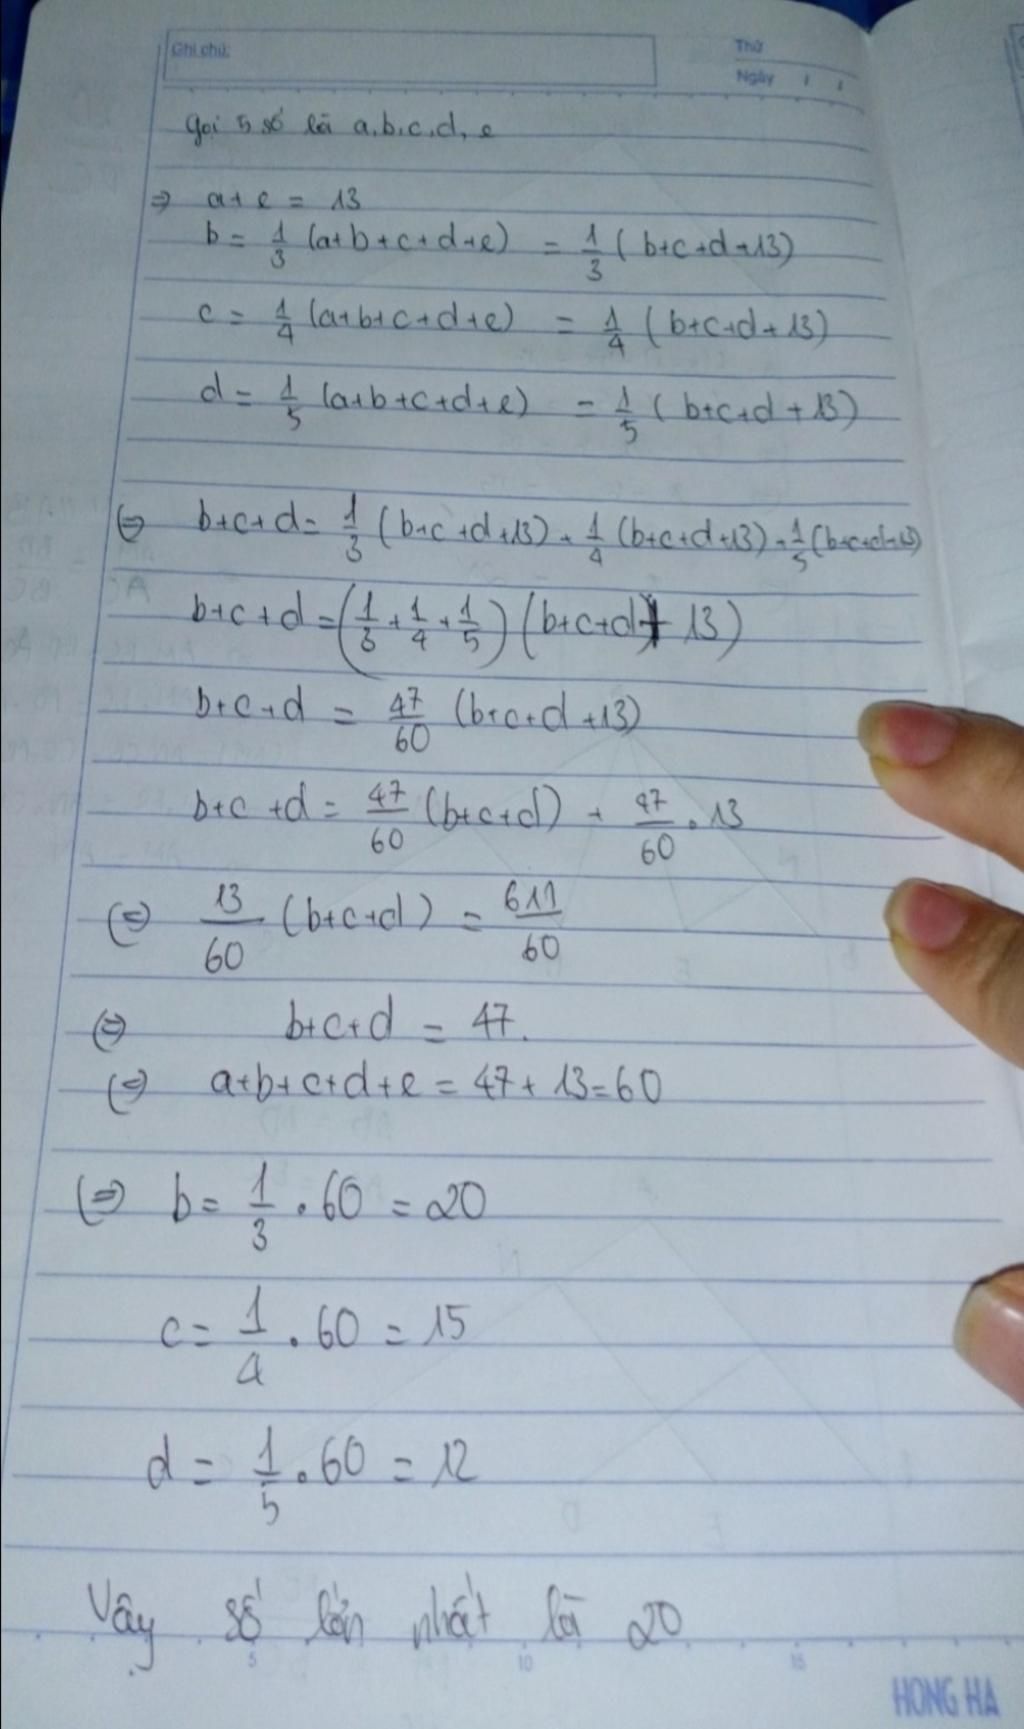 Ghi chú:
Thứ
Ngày / /
Gọi 5 số là a,b,c,d,e
=> a+e = 13
b = 1/3 (a+b+c+d+e) = 1/3 (b+c+d+13)
c = 1/4 (a+b+c+d+e) = 1/4 (b+c+d+13)
d = 1/5 (a+b+c+d+e) = 1/5 (b+c+d+13)
(=) b+c+d = 1/3 (b+c+d+13) + 1/4 (b+c+d+13) + 1/5 (b+c+d+13)
b+c+d = (1/3 + 1/4 + 1/5) (b+c+d + 13)
b+c+d = 47/60 (b+c+d+13)
b+c+d = 47/60 (b+c+d) + 47/60 . 13
(=) 13/60 (b+c+d) = 611/60
(=) b+c+d = 47.
(=) a+b+c+d+e = 47+13=60
(=) b = 1/3 . 60 = 20
c = 1/4 . 60 = 15
d = 1/5 . 60 = 12
Vậy số lớn nhất là 20
5 10 15
HONG HA